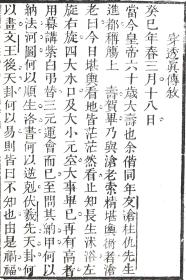 穿透真傳敘
癸巳年春三月十八日
當今皇帝六十歲大壽也余偕同年友滄柱仇先生
進都稱觴上 壽賀畢乃與滄老索情堪輿術者滄
老曰今日堪輿看地皆茫茫然看止知長生沐浴左
旋右旋四大水口及大小元空大事畢已再有高者
用幕講紫白弔替三元運會而已至問其納甲何以
納法河圖何以順生洛書何以逆剋伏羲先天卦何
以畫文王後天卦何以易則皆曰不知也由是禍福